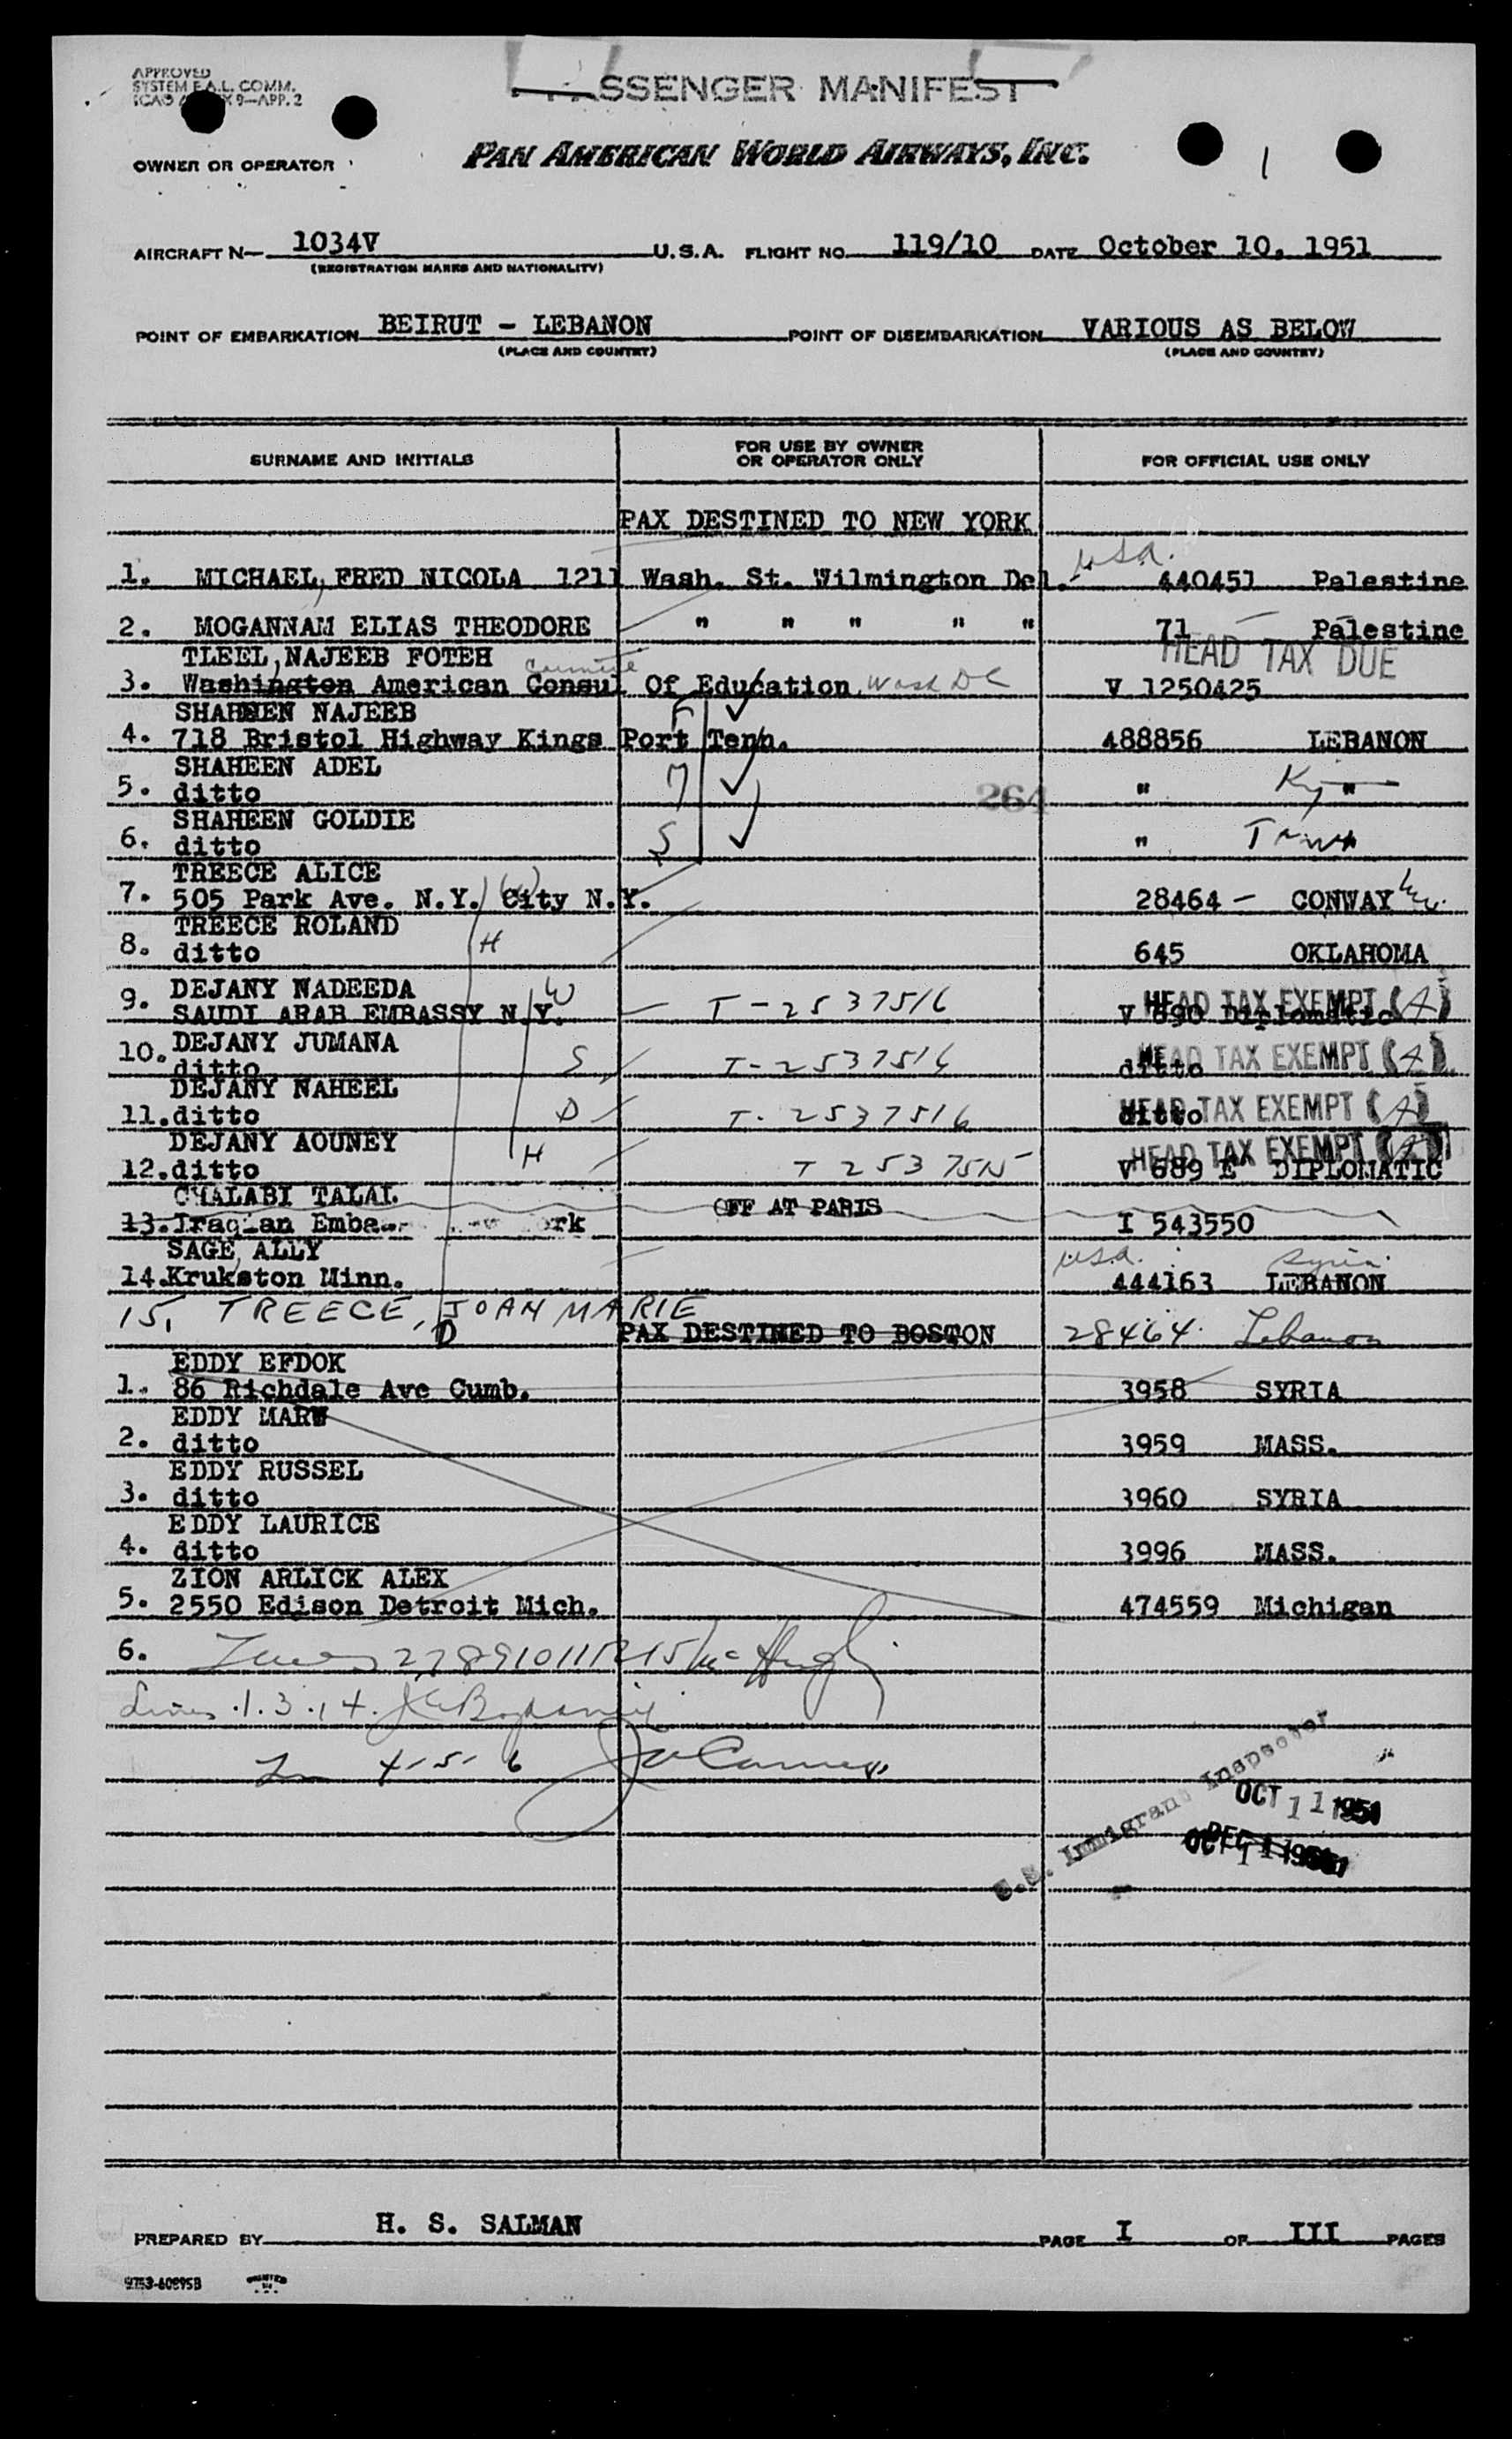 APPROVED
SYSTEM F.A.L. COMM.
ICAO 9-APP. 2
PASSENGER MANIFEST
OWNER OR OPERATOR
PAN AMERICAN WORLD AIRWAYS, INC.
1
AIRCRAFT N- 1034V U.S.A. FLIGHT NO. 119/10 DATE October 10, 1951
(REGISTRATION MARKS AND NATIONALITY)
POINT OF EMBARKATION BEIRUT - LEBANON POINT OF DISEMBARKATION VARIOUS AS BELOW
(PLACE AND COUNTRY) (PLACE AND COUNTRY)
SURNAME AND INITIALS FOR USE BY OWNER OR OPERATOR ONLY FOR OFFICIAL USE ONLY
PAX DESTINED TO NEW YORK
usa.
1. MICHAEL, FRED NICOLA 1211 Wash. St. Wilmington Del. 440451 Palestine
2. MOGANNAM ELIAS THEODORE " " " " " 71 Palestine
TLEEL, NAJEEB FOTEH HEAD TAX DUE
3. Washington American Consul Of Education Wash DC V 1250425
SHAHEEN NAJEEB F
4. 718 Bristol Highway Kings Port Tenn. 488856 LEBANON
SHAHEEN ADEL
5. ditto M 264 " Ky "
SHAHEEN GOLDIE
6. ditto S " Tenn
TREECE ALICE
7. 505 Park Ave. N.Y. City N.Y. (W) 28464 - CONWAY
TREECE ROLAND
8. ditto H 645 OKLAHOMA
9. DEJANY NADEEDA W T-2537516 HEAD TAX EXEMPT (A)
SAUDI ARAB EMBASSY N.Y. V 690 Diplomatic
10. DEJANY JUMANA S T-2537516 HEAD TAX EXEMPT (A)
ditto ditto
DEJANY NAHEEL
11. ditto D T-2537516 ditto HEAD TAX EXEMPT (A)
DEJANY AOUNEY H HEAD TAX EXEMPT (A)
12. ditto T 2537515 V 689 E DIPLOMATIC
CHALABI TALAL OFF AT PARIS
13. Iraqian I 543550
SAGE, ALLY usa. Syria.
14. Krukston Minn. 444163 LEBANON
15, TREECE, JOAN MARIE
D PAX DESTINED TO BOSTON 28464 Lebanon
EDDY EFDOK
1. 86 Richdale Ave Cumb. 3958 SYRIA
EDDY MARW
2. ditto 3959 MASS.
EDDY RUSSEL
3. ditto 3960 SYRIA
EDDY LAURICE
4. ditto 3996 MASS.
ZION ARLICK ALEX
5. 2550 Edison Detroit Mich. 474559 Michigan
6. Lines 2 7 8 9 10 11 12 15
Lines 1.3.14.
4-5-6
U.S. Immigrant Inspector
OCT 11 1951
PREPARED BY H. S. SALMAN PAGE I OF III PAGES
9753-60895B